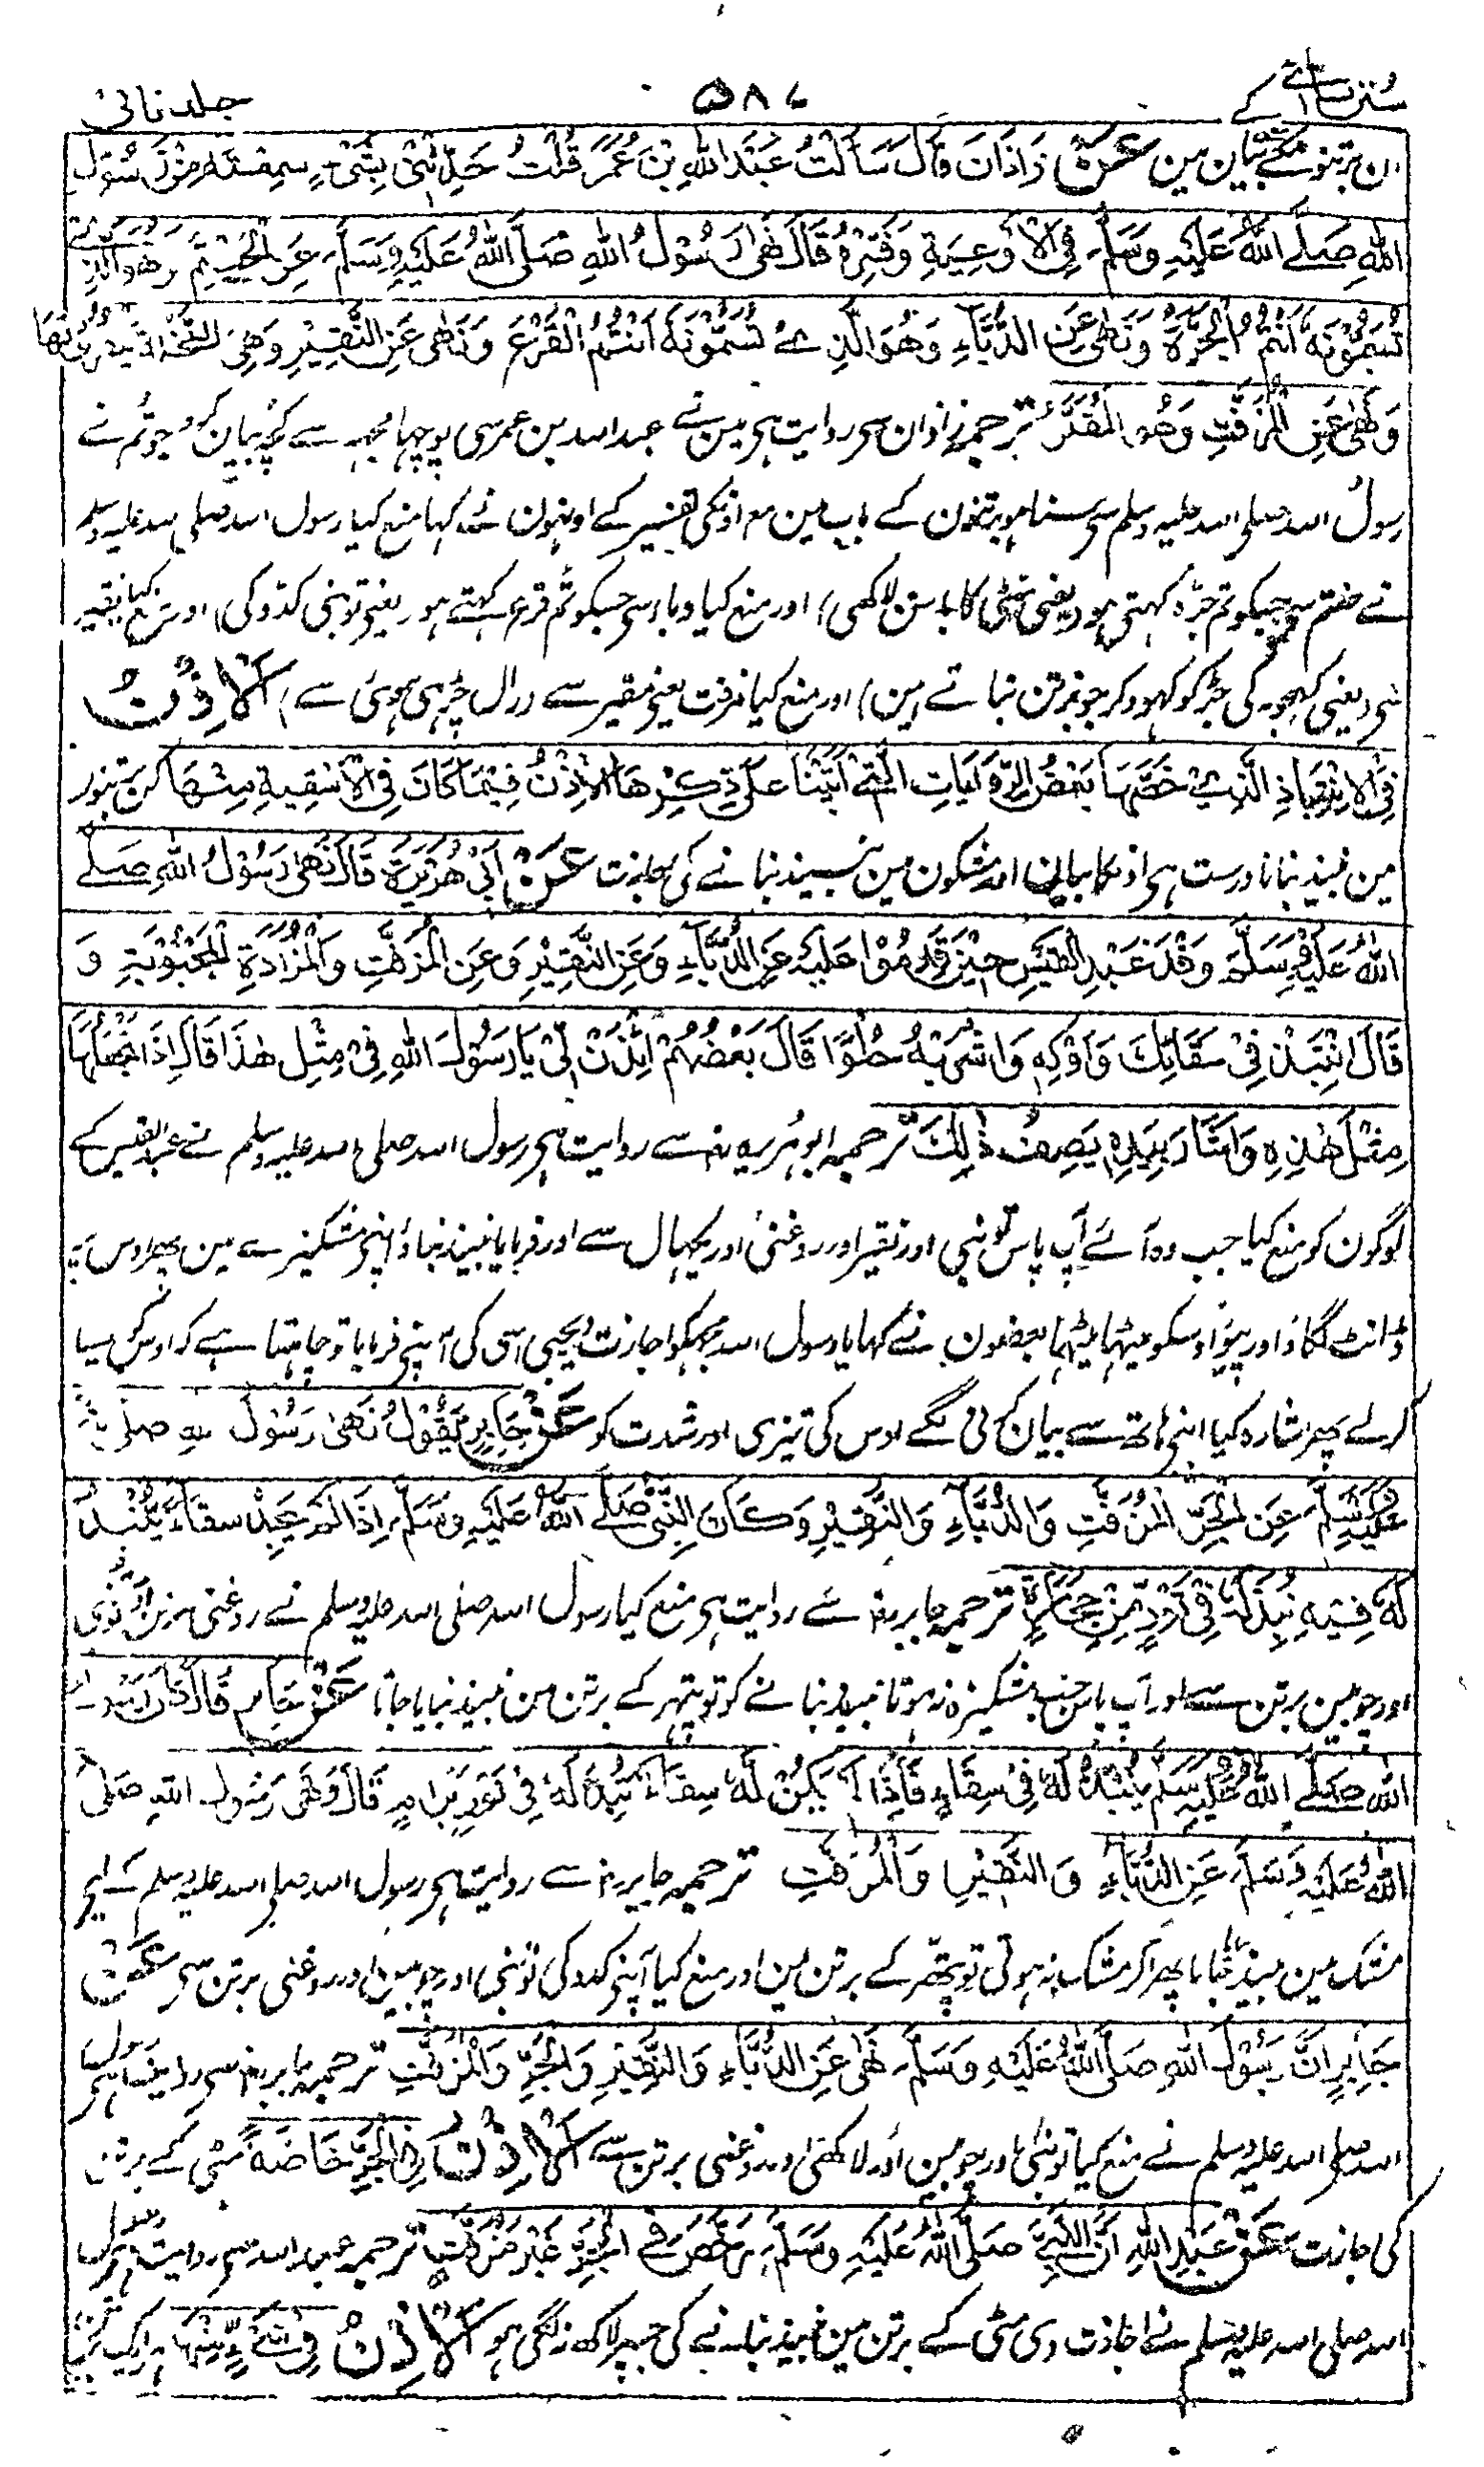 سنن نسائی کے ۵۸۷ جلد ثانی
ان برتنونکے بیان مین عَنْ زَاذَانَ قَالَ سَأَلْتُ عَبْدَ اللهِ بْنَ عُمَرَ قُلْتُ حَدِّثْنِىْ بِشَىْءٍ سَمِعْتَهُ مِنْ رَسُوْلِ
اللهِ صَلَّے اللهُ عَلَيْهِ وَسَلَّمَ فِى الْاَوْعِيَةِ وَفَسِّرْهُ قَالَ نَهٰى رَسُوْلُ اللهِ صَلَّى اللهُ عَلَيْهِ وَسَلَّمَ عَنِ الْحَنْتَمِ وَهُوَ الَّذِىْ
تُسَمُّوْنَهُ اَنْتُمُ الْجَرَّةَ وَنَهٰى عَنِ الدُّبَّاءِ وَهُوَ الَّذِىْ تُسَمُّوْنَهُ اَنْتُمُ الْقَرْعَ وَنَهٰى عَنِ النَّقِيْرِ وَهِىَ النَّخْلَةُ يَنْقُرُوْنَهَا
وَنَهٰى عَنِ الْمُزَفَّتِ وَهُوَ الْمُقَيَّرُ ترجمہ زاذان سے روایت ہے مین نے عبد اللہ بن عمر سی پوچہا مجہہ سے کچہ بیان کرو جو تم نے
رسول اللہ صلی اللہ علیہ وسلم سی سنا ہو برتنون کے باب مین مع اونکی تفسیر کے اونہون نے کہا منع کیا رسول اللہ صلی اللہ علیہ وسلم
نے حنتم سے جسکو تم جرّہ کہتی ہو (یعنی مٹی کا باسن لاکھی) اور منع کیا دباء سی جسکو تم قرع کہتے ہو (یعنی تونبی کدّو کی) اور منع کیا نقیر
سی (یعنی کہجور کی جڑ کو کہود کر جو برتن بناتے ہین) اور منع کیا مزفت یعنی مقیر سے (رال چڑہی ہوئی سے) اَلْاِذْنُ
فِى الْاِنْتِبَاذِ الَّذِىْ خَصَّهَا بَعْضُ الرِّوَايَاتِ الَّتِىْ اَتَيْنَا عَلٰى ذِكْرِهَا الْاِذْنُ فِيْمَا كَانَ فِى الْاَسْقِيَةِ مِنْهَا کن برتنون
مین نبیذ بنانا درست ہے اونکا بیان اور مشکون مین نبیذ بنانے کی اجازت عَنْ اَبِىْ هُرَيْرَةَ قَالَ نَهٰى رَسُوْلُ اللهِ صَلَّے
اللهُ عَلَيْهِ وَسَلَّمَ وَفْدَ عَبْدِ الْقَيْسِ حِيْنَ قَدِمُوْا عَلَيْهِ عَنِ الدُّبَّاءِ وَعَنِ النَّقِيْرِ وَعَنِ الْمُزَفَّتِ وَالْمَزَادَةِ الْمَجْبُوْبَةِ وَ
قَالَ انْتَبِذْ فِىْ سِقَائِكَ وَاَوْكِهٖ وَاشْرَبْهُ حُلْوًا قَالَ بَعْضُهُمْ ائْذَنْ لِىْ يَا رَسُوْلَ اللهِ فِىْ مِثْلِ هٰذَا قَالَ اِذًا تَجْعَلُهَا
مِثْلَ هٰذِهٖ وَاَشَارَ بِيَدِهٖ يَصِفُ ذٰلِكَ ترجمہ ابو ہریرہ رض سے روایت ہے رسول اللہ صلی اللہ علیہ وسلم نے عبد القیس کے
لوگون کو منع کیا جب وہ آئے آپ پاس تونبی اور نقیر اور روغنی اور پکہال سے اور فرمایا نبیذ بناؤ اپنی مشکیزے مین پہر اوس پر
ڈانٹ لگاؤ اور پیو اوسکو میٹہا میٹہا بعضون نے کہا یا رسول اللہ مجہکو اجازت دیجیی اسی کی آپنے فرمایا تو چاہتا ہے کہ اوس کو ایسا
کرلے پہر اشارہ کیا اپنی ہاتھ سے بیان کرنی لگے اوس کی تیزی اور شدت کو عَنْ جَابِرٍ يَقُوْلُ نَهٰى رَسُوْلُ اللهِ صَلَّى اللهُ
عَلَيْهِ وَسَلَّمَ عَنِ الْجَرِّ الْمُزَفَّتِ وَالدُّبَّاءِ وَالنَّقِيْرِ وَكَانَ النَّبِىُّ صَلَّے اللهُ عَلَيْهِ وَسَلَّمَ اِذَا لَمْ يَجِدْ سِقَاءً يُنْبَذُ
لَهُ فِيْهِ نُبِذَ لَهُ فِىْ تَوْرٍ مِّنْ حِجَارَةٍ ترجمہ جابر رض سے روایت ہے منع کیا رسول اللہ صلی اللہ علیہ وسلم نے روغنی برتن اور تونبی
اور چوبین برتن سے اور آپ پاس جب مشکیزہ نہ ہوتا نبیذ بنانے کو تو پتہر کے برتن مین نبیذ بنایا جاتا عَنْ جَابِرٍ قَالَ كَانَ رَسُوْلُ
اللهِ صَلَّے اللهُ عَلَيْهِ وَسَلَّمَ يُنْبَذُ لَهُ فِىْ سِقَاءٍ فَاِذَا لَمْ يَكُنْ لَهُ سِقَاءٌ نُبِذَ لَهُ فِىْ تَوْرٍ بِرَامٍ قَالَ وَنَهٰى رَسُوْلُ اللهِ صَلَّى
اللهُ عَلَيْهِ وَسَلَّمَ عَنِ الدُّبَّاءِ وَالنَّقِيْرِ وَالْمُزَفَّتِ ترجمہ جابر رض سے روایت ہے رسول اللہ صلی اللہ علیہ وسلم کے لیے
مشک مین نبیذ بنایا جاتا پہر اگر مشک نہ ہوتی تو پتّھر کے برتن مین اور منع کیا آپنے کدو کی تونبی اور چوبین اور روغنی برتن سے عَنْ
جَابِرٍ اَنَّ رَسُوْلَ اللهِ صَلَّى اللهُ عَلَيْهِ وَسَلَّمَ نَهٰى عَنِ الدُّبَّاءِ وَالنَّقِيْرِ وَالْجَرِّ وَالْمُزَفَّتِ ترجمہ جابر رض سے روایت ہے رسول
اللہ صلی اللہ علیہ وسلم نے منع کیا تونبی اور چوبین اور لاکھی اور روغنی برتن سے اَلْاِذْنُ فِى الْجَرِّ خَاصَّةً مٹی کے برتن
کی اجازت عَنْ عَبْدِ اللهِ اَنَّ النَّبِىَّ صَلَّى اللهُ عَلَيْهِ وَسَلَّمَ رَخَّصَ فِى الْجَرِّ غَيْرِ مُزَفَّتٍ ترجمہ عبد اللہ سے روایت ہے رسول
اللہ صلی اللہ علیہ وسلم نے اجازت دی مٹی کے برتن مین نبیذ بنانے کی جسپر لاکھ نہ لگی ہو اَلْاِذْنُ فِىْ شَىْءٍ مِنْهَا ہر ایک برتن